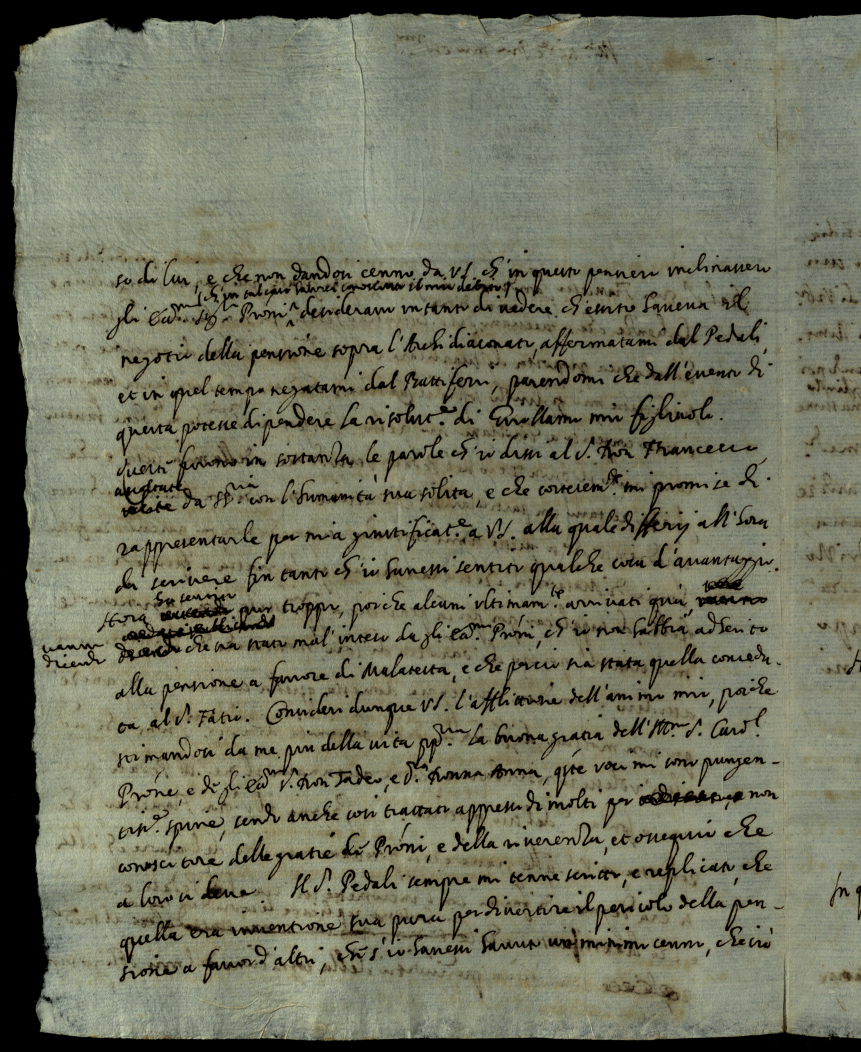 so di lui, e che non dandosi cenno da V.S. ch'in questo pensiero inclinassero
gli Ecc.mi Sig.ri Proni desideravo intanto di vedere ch'esito haveva il
negotio della pensione sopra l'Archidiaconato, affermatami dal Pedali,
et in quel tempo negatami dal Buttiferri, parendomi che dall'evento di
questa potesse dipendere la risolut.ne di Guillelmo mio figliuolo.
Questi furono in sostanza le parole ch'io dissi al S. Don Francesco
ascoltate
da con l'humanità sua solita, e che cortesem.te mi promise di
rappresentarle per mia giustificat.ne a V.S. alla quale differij all'hora
di scrivere fin tanto ch'io havessi sentito qualche cosa d'avantaggio.
Hora pur troppo, poiche alcuni ultimam.te arrivati quà,
vanno
dicendo
che sia stato mal'inteso da gli Ecc.mi Proni, ch'io non habbia adherito
alla pensione a favore di Malatesta, e che perciò sia stata quella concedu-
ta al S. Fatio. Consideri dunque V.S. l'afflittione dell'animo mio, poiche
stimandosi da me più della vita pp.ria la buona gratia dell' S. Card.l
Prone, e de gli Ecc.mi S. Don Tadeo, e D. Donna Anna, q.ste voci mi sono pungen-
tiss.e spine, sendo anche così trattato appresso di molti per non
conoscitore delle gratie de Proni, e della riverenza, et ossequio che
a loro si deve. Il S. Pedali sempre mi tenne scritto, e replicato, che
quella era inventione sua pura per divertire il pericolo della pen-
sione a favor d'altri, che s'io havessi havuto un minimo cenno, che ciò